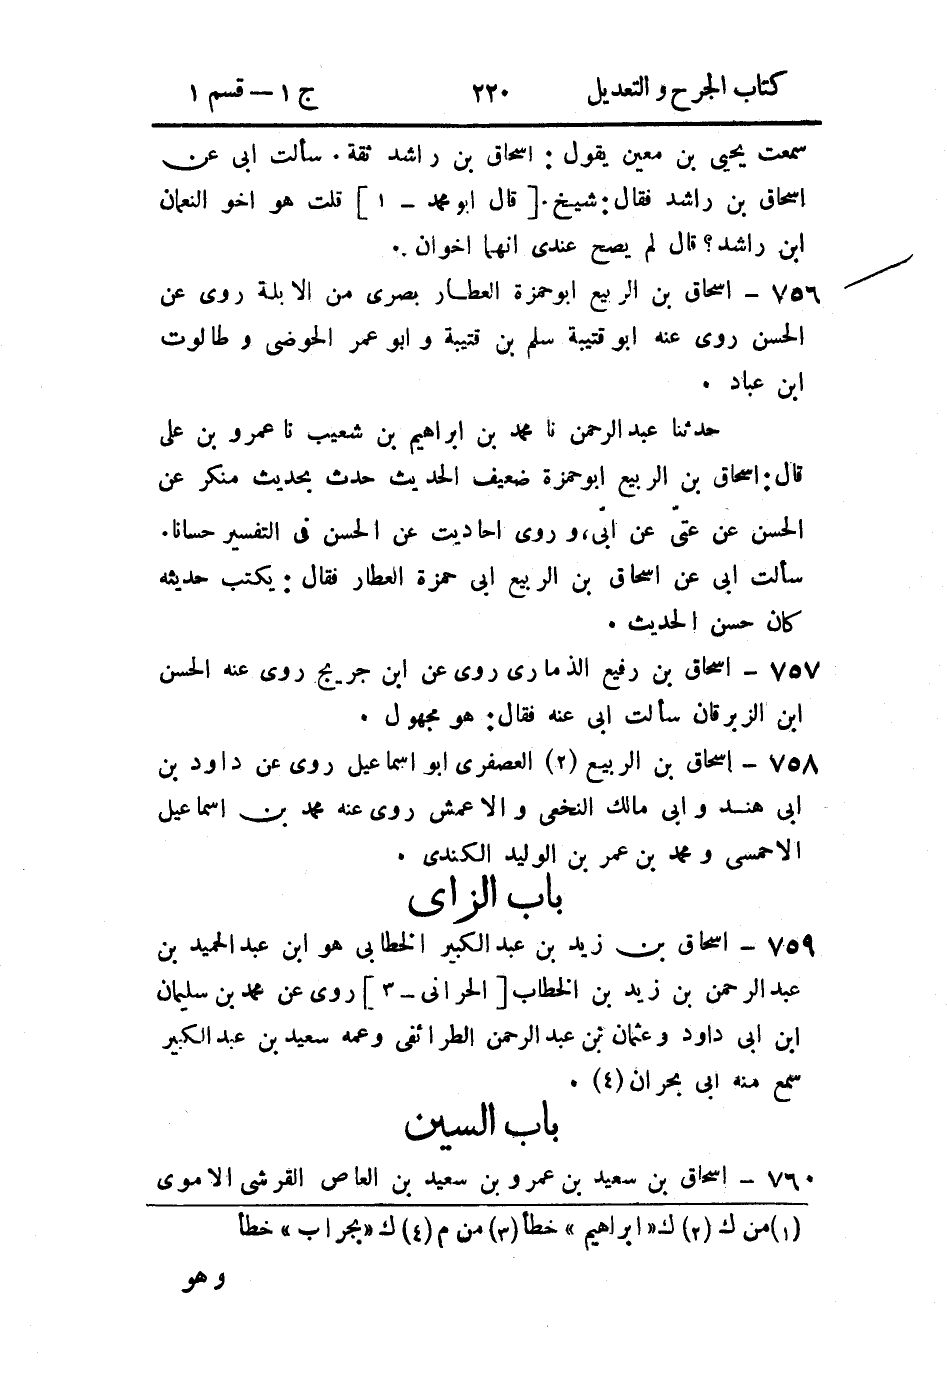 كتاب الجرح والتعديل ٢٢٠ ج ١ – قسم ١
سمعت يحيى بن معين يقول : اسحاق بن راشد ثقة . سألت ابى عن
اسحاق بن راشد فقال : شيخ . [ قال ابو محمد – ١ ] قلت هو اخو النعمان
ابن راشد ؟ قال لم يصح عندى انهما اخوان .
٧٥٦ – اسحاق بن الربيع ابو حمزة العطار بصرى من الابلة روى عن
الحسن روى عنه ابو قتيبة سلم بن قتيبة و ابو عمر الحوضى و طالوت
ابن عباد .
حدثنا عبد الرحمن نا محمد بن ابراهيم بن شعيب نا عمرو بن على
قال : اسحاق بن الربيع ابو حمزة ضعيف الحديث حدث بحديث منكر عن
الحسن عن عتىّ عن ابىّ، و روى احاديت عن الحسن فى التفسير حسانا .
سألت ابى عن اسحاق بن الربيع ابى حمزة العطار فقال : يكتب حديثه
كان حسن الحديث .
٧٥٧ – اسحاق بن رفيع الذمارى روى عن ابن جريج روى عنه الحسن
ابن الزبرقان سألت ابى عنه فقال : هو مجهول .
٧٥٨ – اسحاق بن الربيع (٢) العصفرى ابو اسماعيل روى عن داود بن
ابى هند و ابى مالك النخعى و الاعمش روى عنه محمد بن اسماعيل
الاحمسى و محمد بن عمر بن الوليد الكندى .
باب الزاى
٧٥٩ – اسحاق بن زيد بن عبد الكبير الخطابى هو ابن عبد الحميد بن
عبد الرحمن بن زيد بن الخطاب [ الحرانى – ٣ ] روى عن محمد بن سليمان
ابن ابى داود و عثمان بن عبد الرحمن الطرائفى و عمه سعيد بن عبد الكبير
سمع منه ابى بحران (٤) .
باب السين
٧٦٠ – اسحاق بن سعيد بن عمرو بن سعيد بن العاص القرشى الاموى
(١) من ك (٢) ك « ابراهيم » خطأ (٣) من م (٤) ك « بجراب » خطأ
و هو